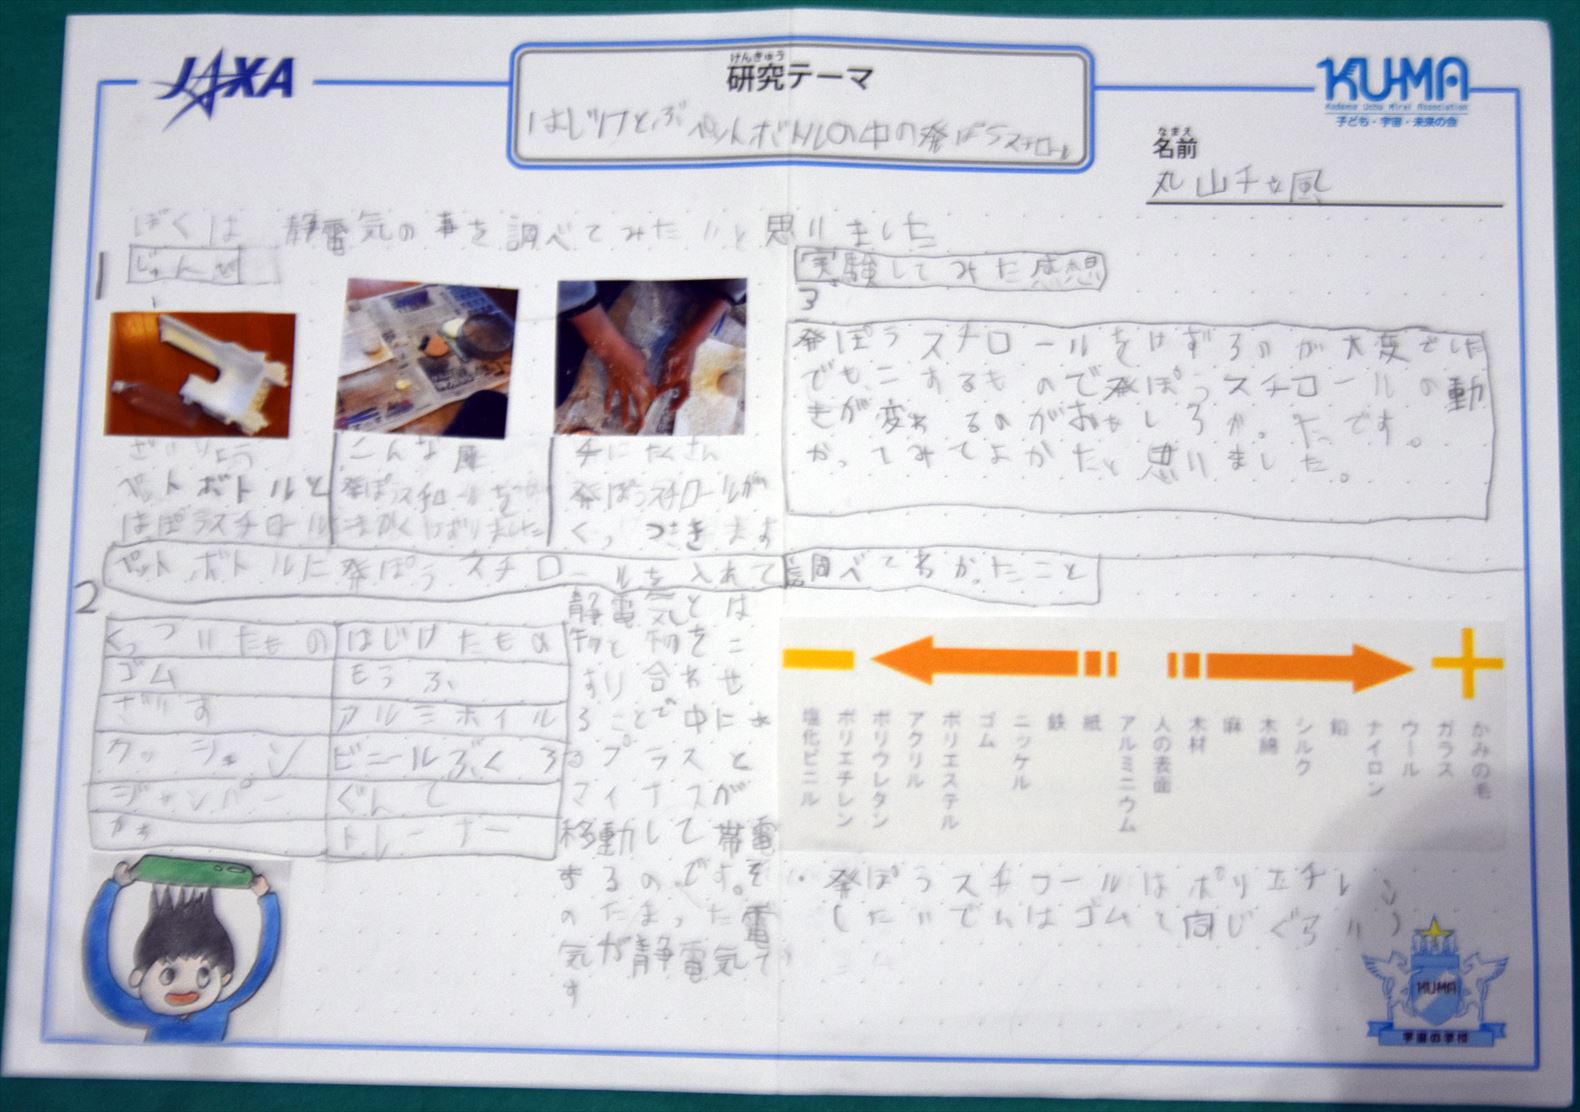 JAXA
げんきゅう
研究テーマ
はじけとぶペットボトルの中の発ぽうスチロール
KUMA
Kodomo Uchu Mirai Association
子ども・宇宙・未来の会
なまえ
名前
丸山
ぼくは 静電気の事を調べてみたいと思いました
1
じゅんび
ざいりょう
ペットボトルと
はぽうスチロール
こんな風
発ぽうスチロールを
こまかくけずりました
手にたくさん
発ぽうスチロールが
くっつきます
2
ペットボトルに発ぽうスチロールを入れて
くっついたもの はじけたもの
ゴム もうふ
ざいす アルミホイル
クッション ビニールぶくろ
ジャンパー ぐんて
かわ トレーナー
静電気とは
物と物をこ
すり合わせ
ることで中にあ
るプラスと
マイナスが
移動して帯電
するのです。そ
のたまった電
気が静電気で
す
実験してみた感想
3
発ぽうスチロールをけずるのが大変でした
でもこするもので発ぽうスチロールの動
きが変わるのがおもしろかったです。
やってみてよかたと思いました。
調べてわかったこと
塩化ビニル
ポリエチレン
ポリウレタン
アクリル
ポリエステル
ゴム
ニッケル
鉄
紙
アルミニウム
人の表面
木材
麻
木綿
シルク
鉛
ナイロン
ウール
ガラス
かみの毛
発ぽうスチロールはポリエチレン
(たいでんはゴムと同じぐらい)
KUMA
宇宙の学校